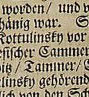 worden/ und
hänig war. S
Kottulinsky vor
esischer Cammer
itz/ Tammer/
linsky gehörend
lich von den Sch